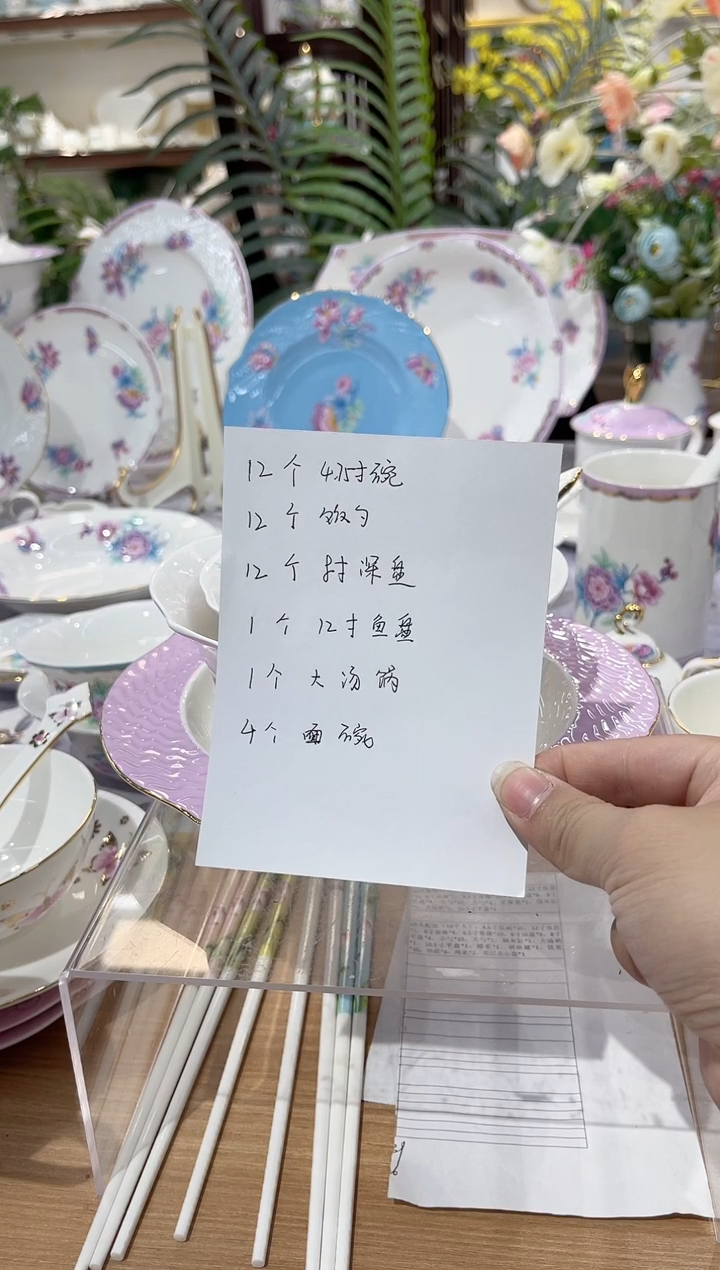 12个 4.5寸碗
12个 饭勺
12个 8寸深盘
1个 12寸鱼盘
1个 大汤锅
4个 面碗